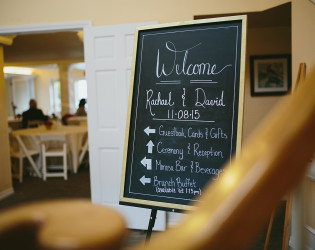 Welcome
Rachael & David
11-08-15
Guestbook, Cards & Gifts
Ceremony & Reception
Mimosa Bar & Beverages
Brunch Buffet
(available 'til 1:15pm)